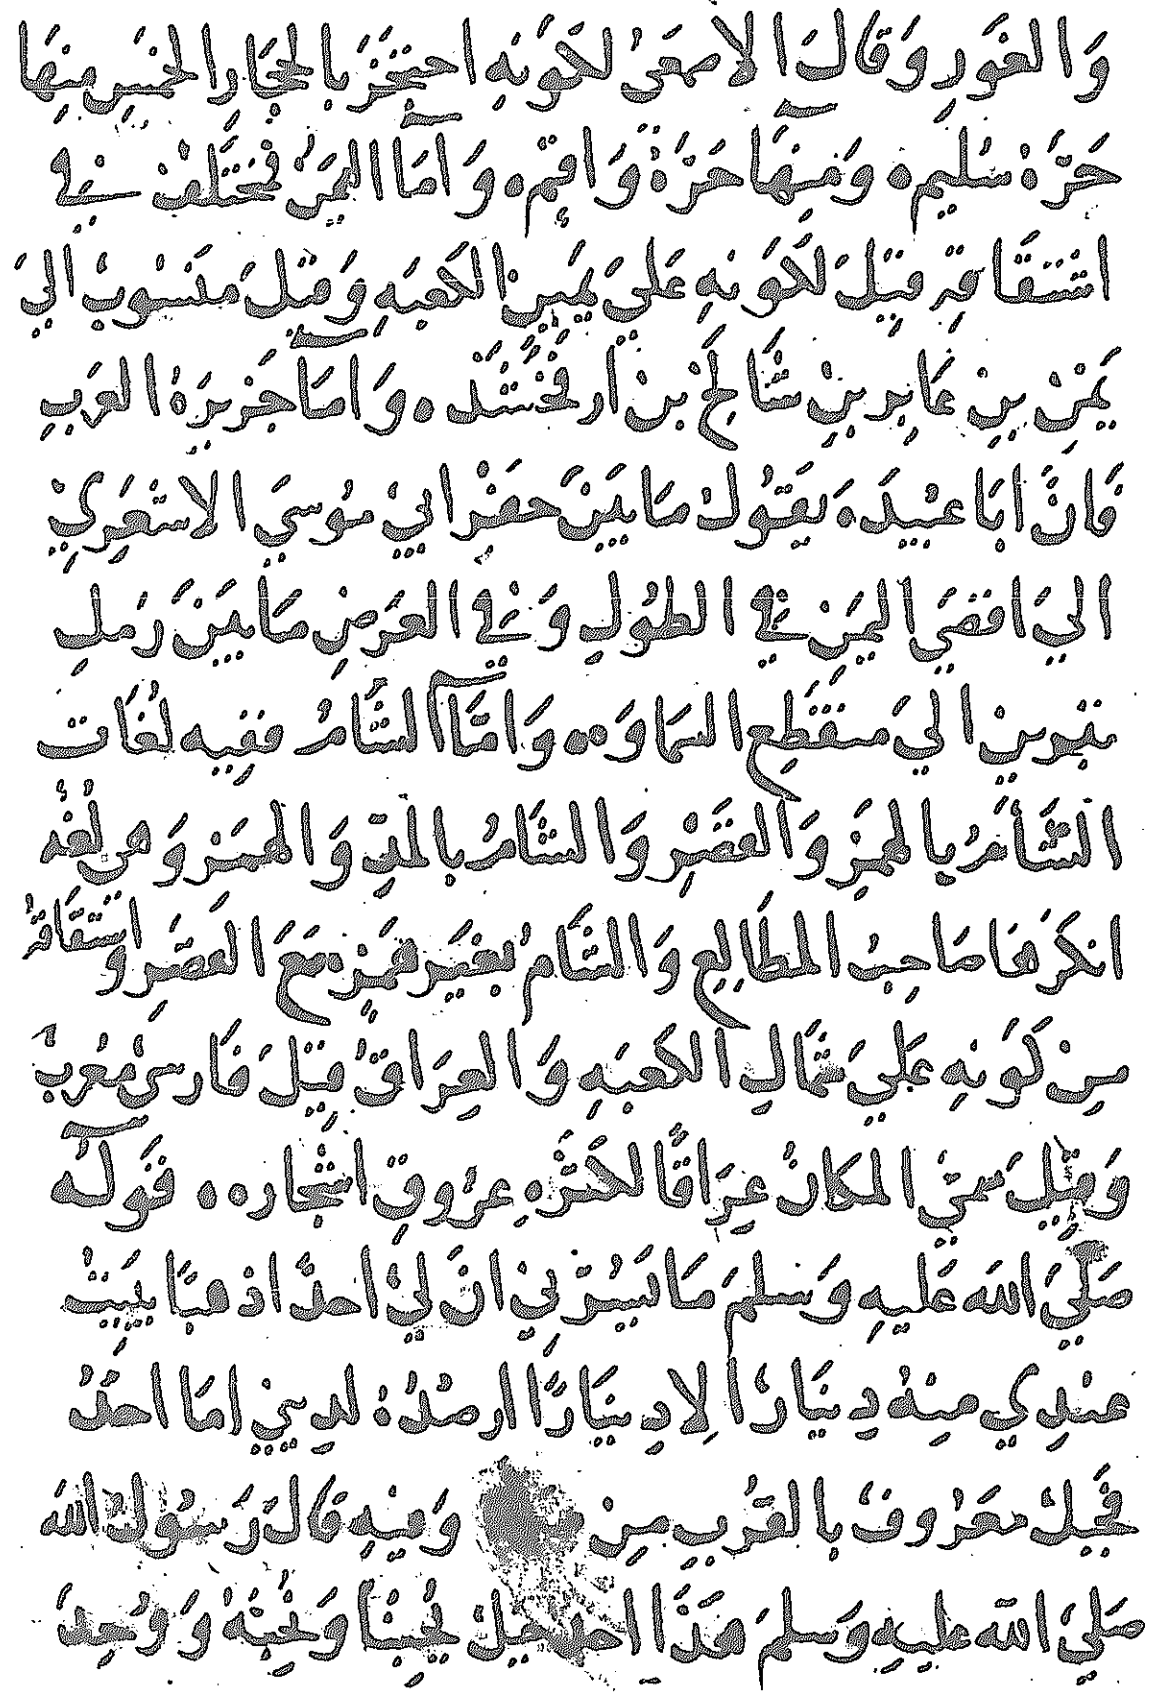 وَالغَورِ وَقَالَ الاصمَعىُ لكَونِهِ احتَجَزَ بالحجَارِ الخمَسِ مِنهَا
حَرَّهُ سُليم ومَنهَا حَرَّةُ وَاقِم وَامَّا اليَمَنُ فمختَلَفٌ فِي
اشتقَاقِهِ قِيلَ لكَونِهِ عَلَى يمَينِ الكَعبَهِ وَقِيلَ مَنسُوبٌ الَى
يَمَنَ بنِ عَابِر بنِ شَالَخَ بن ارفخَشَد وَامَّا جَزيرَةُ العَرَبِ
فَانَّ ابَا عُبيدَه يقُولُ مَا بَينَ حفَرِ ابي مُوسَى الاشعَرِي
الىَ اقصَى اليَمَنِ في الطُولِ وَفي العَرَضِ مَا بَينَ رَملِ
يبرينَ الىَ منقَطَعِ السَماوَه وَامَّا الشَّامُ ففيه لغَات
الشَّأمُ بالهَمزِ وَالقَصْرِ وَالشَامُ بالمدِّ وَالهَمز وَهى لُغَه
انكرَهَا صَاحِبُ المطَالِعِ وَالشَامُ بغَيرِ هَمزٍ مَعَ القَصَرِ واشتقَاقهُ
مِن كَونِهِ عَلَى شمَالِ الكَعبَهِ وَالعِرَاقُ قِيلَ فَارسىٌ مُعَربٌ
وَقِيلَ سُمىَ المكَانُ عِرَاقًا لكَثرهِ عِرُوقِ اشجَاره قَولهُ
صَلىَ اللهَ عَليهِ وَسَلمَ مَا يَسُرّني انَ لي احدًا ذهبًا يبَيتُ
عندِي مِنهُ دِينَارٌ الا دِينَارًا ارصُدُهُ لديني امَا احُدٌ
فجَبلٌ معَرُوفٌ بالقرُبِ مِن وَفيهِ قَالَ رَسُولُ اللهَ
صَلىَ اللهَ عليهِ وَسلمَ هَذَا احدٌ جبلٌ يُحِبنَا وَنُحِبُّهُ وَوُجِدَ